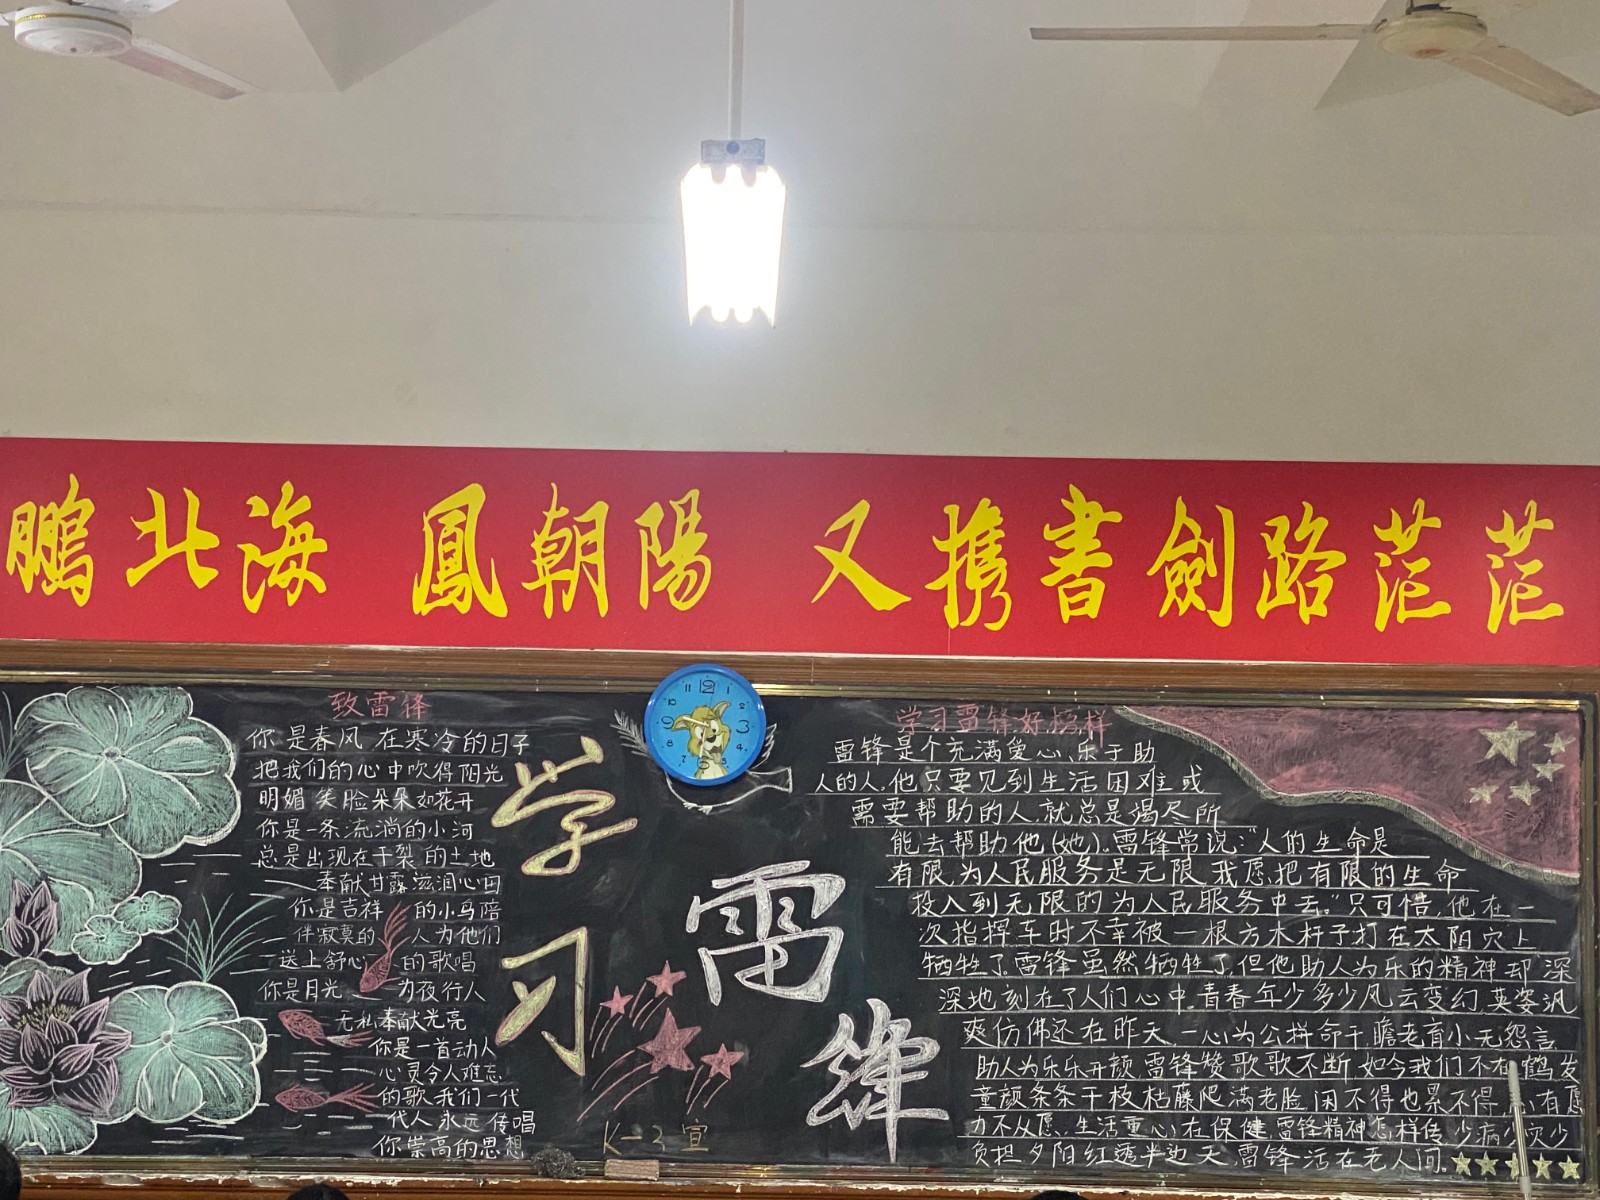 鵬北海 鳳朝陽 又携書劍路茫茫
致雷锋
你是春风 在寒冷的日子
把我们的心中吹得阳光
明媚 笑脸朵朵如花开
你是一条流淌的小河
总是出现在干裂的土地
奉献甘露滋润心田
你是吉祥的小鸟陪
伴寂寞的人为他们
送上舒心的歌唱
你是月光为夜行人
无私奉献光亮
你是一首动人
心灵令人难忘
的歌我们一代
代人永远传唱
你崇高的思想
学习
雷锋
K-3宣
学习雷锋好榜样
雷锋是个充满爱心、乐于助
人的人,他只要见到生活困难或
需要帮助的人,就总是竭尽所
能去帮助他(她).雷锋常说:“人的生命是
有限,为人民服务是无限,我愿把有限的生命
投入到无限的为人民服务中去。”只可惜,他在一
次指挥车时不幸被一根方木杆子打在太阳穴上
牺牲了,雷锋虽然牺牲了,但他助人为乐的精神却深
深地刻在了人们心中.青春年少多少风云变幻,英姿飒
爽仿佛还在昨天.一心为公拼命干,瞻老育小无怨言
助人为乐乐开颜,雷锋赞歌歌不断.如今我们不在鹤发
童颜条条干枝枯藤爬满老脸.闲不得也累不得,心有愿
力不从愿.生活重心在保健.雷锋精神怎样传,少病少灾少
负担.夕阳红透半边天,雷锋活在老人间.